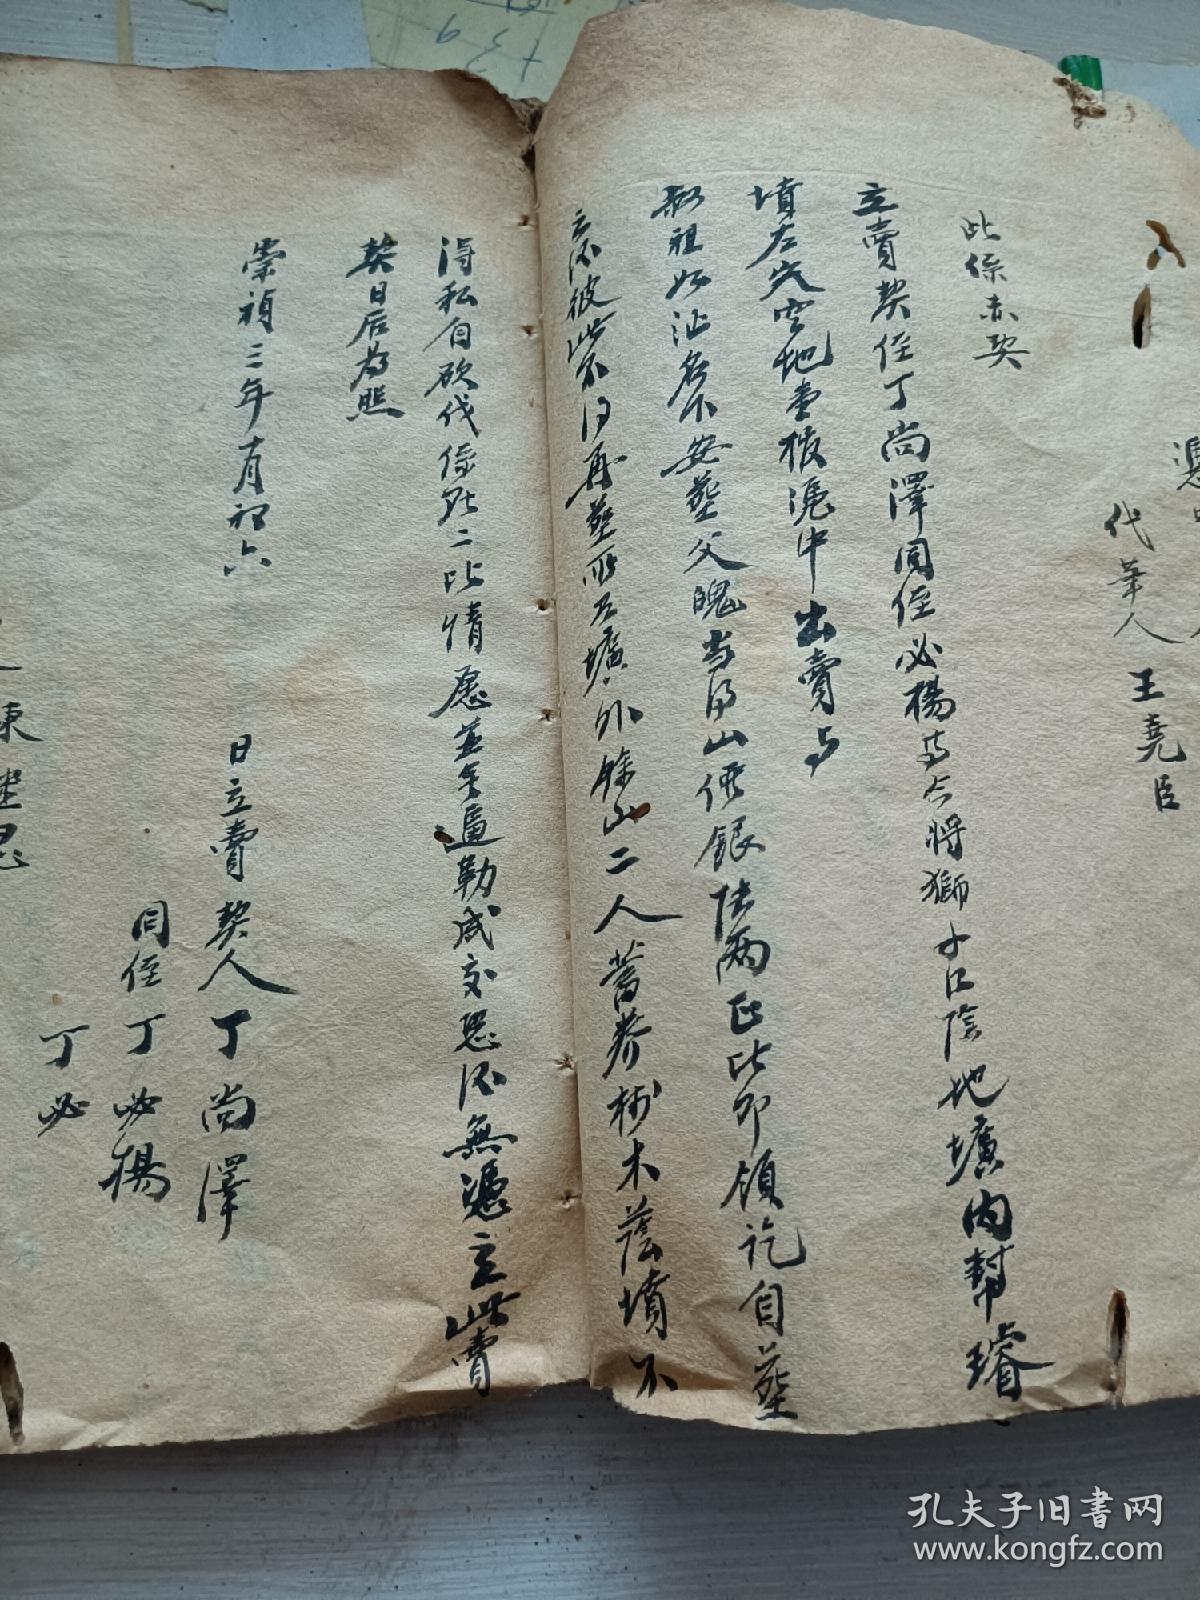 代笔人 王堯臣
此係赤契
立賣契侄丁尚澤同侄必楊 今將獅子口陰地壙內幫璿
墳左穴空地 憑中出賣与
叔祖 名下安葬父 当得山價銀陆兩正比即領訖自葬
之后彼此不得再葬所石壙外餘山二人蓄养树木蔭墳不
得私自砍伐係 二比情愿並無逼勒成交恐后無憑立此賣
契日后為照
崇禎三年 月初六
日立賣契人丁尚澤
同侄丁必楊
丁必
孔夫子旧書网
www.kongfz.com